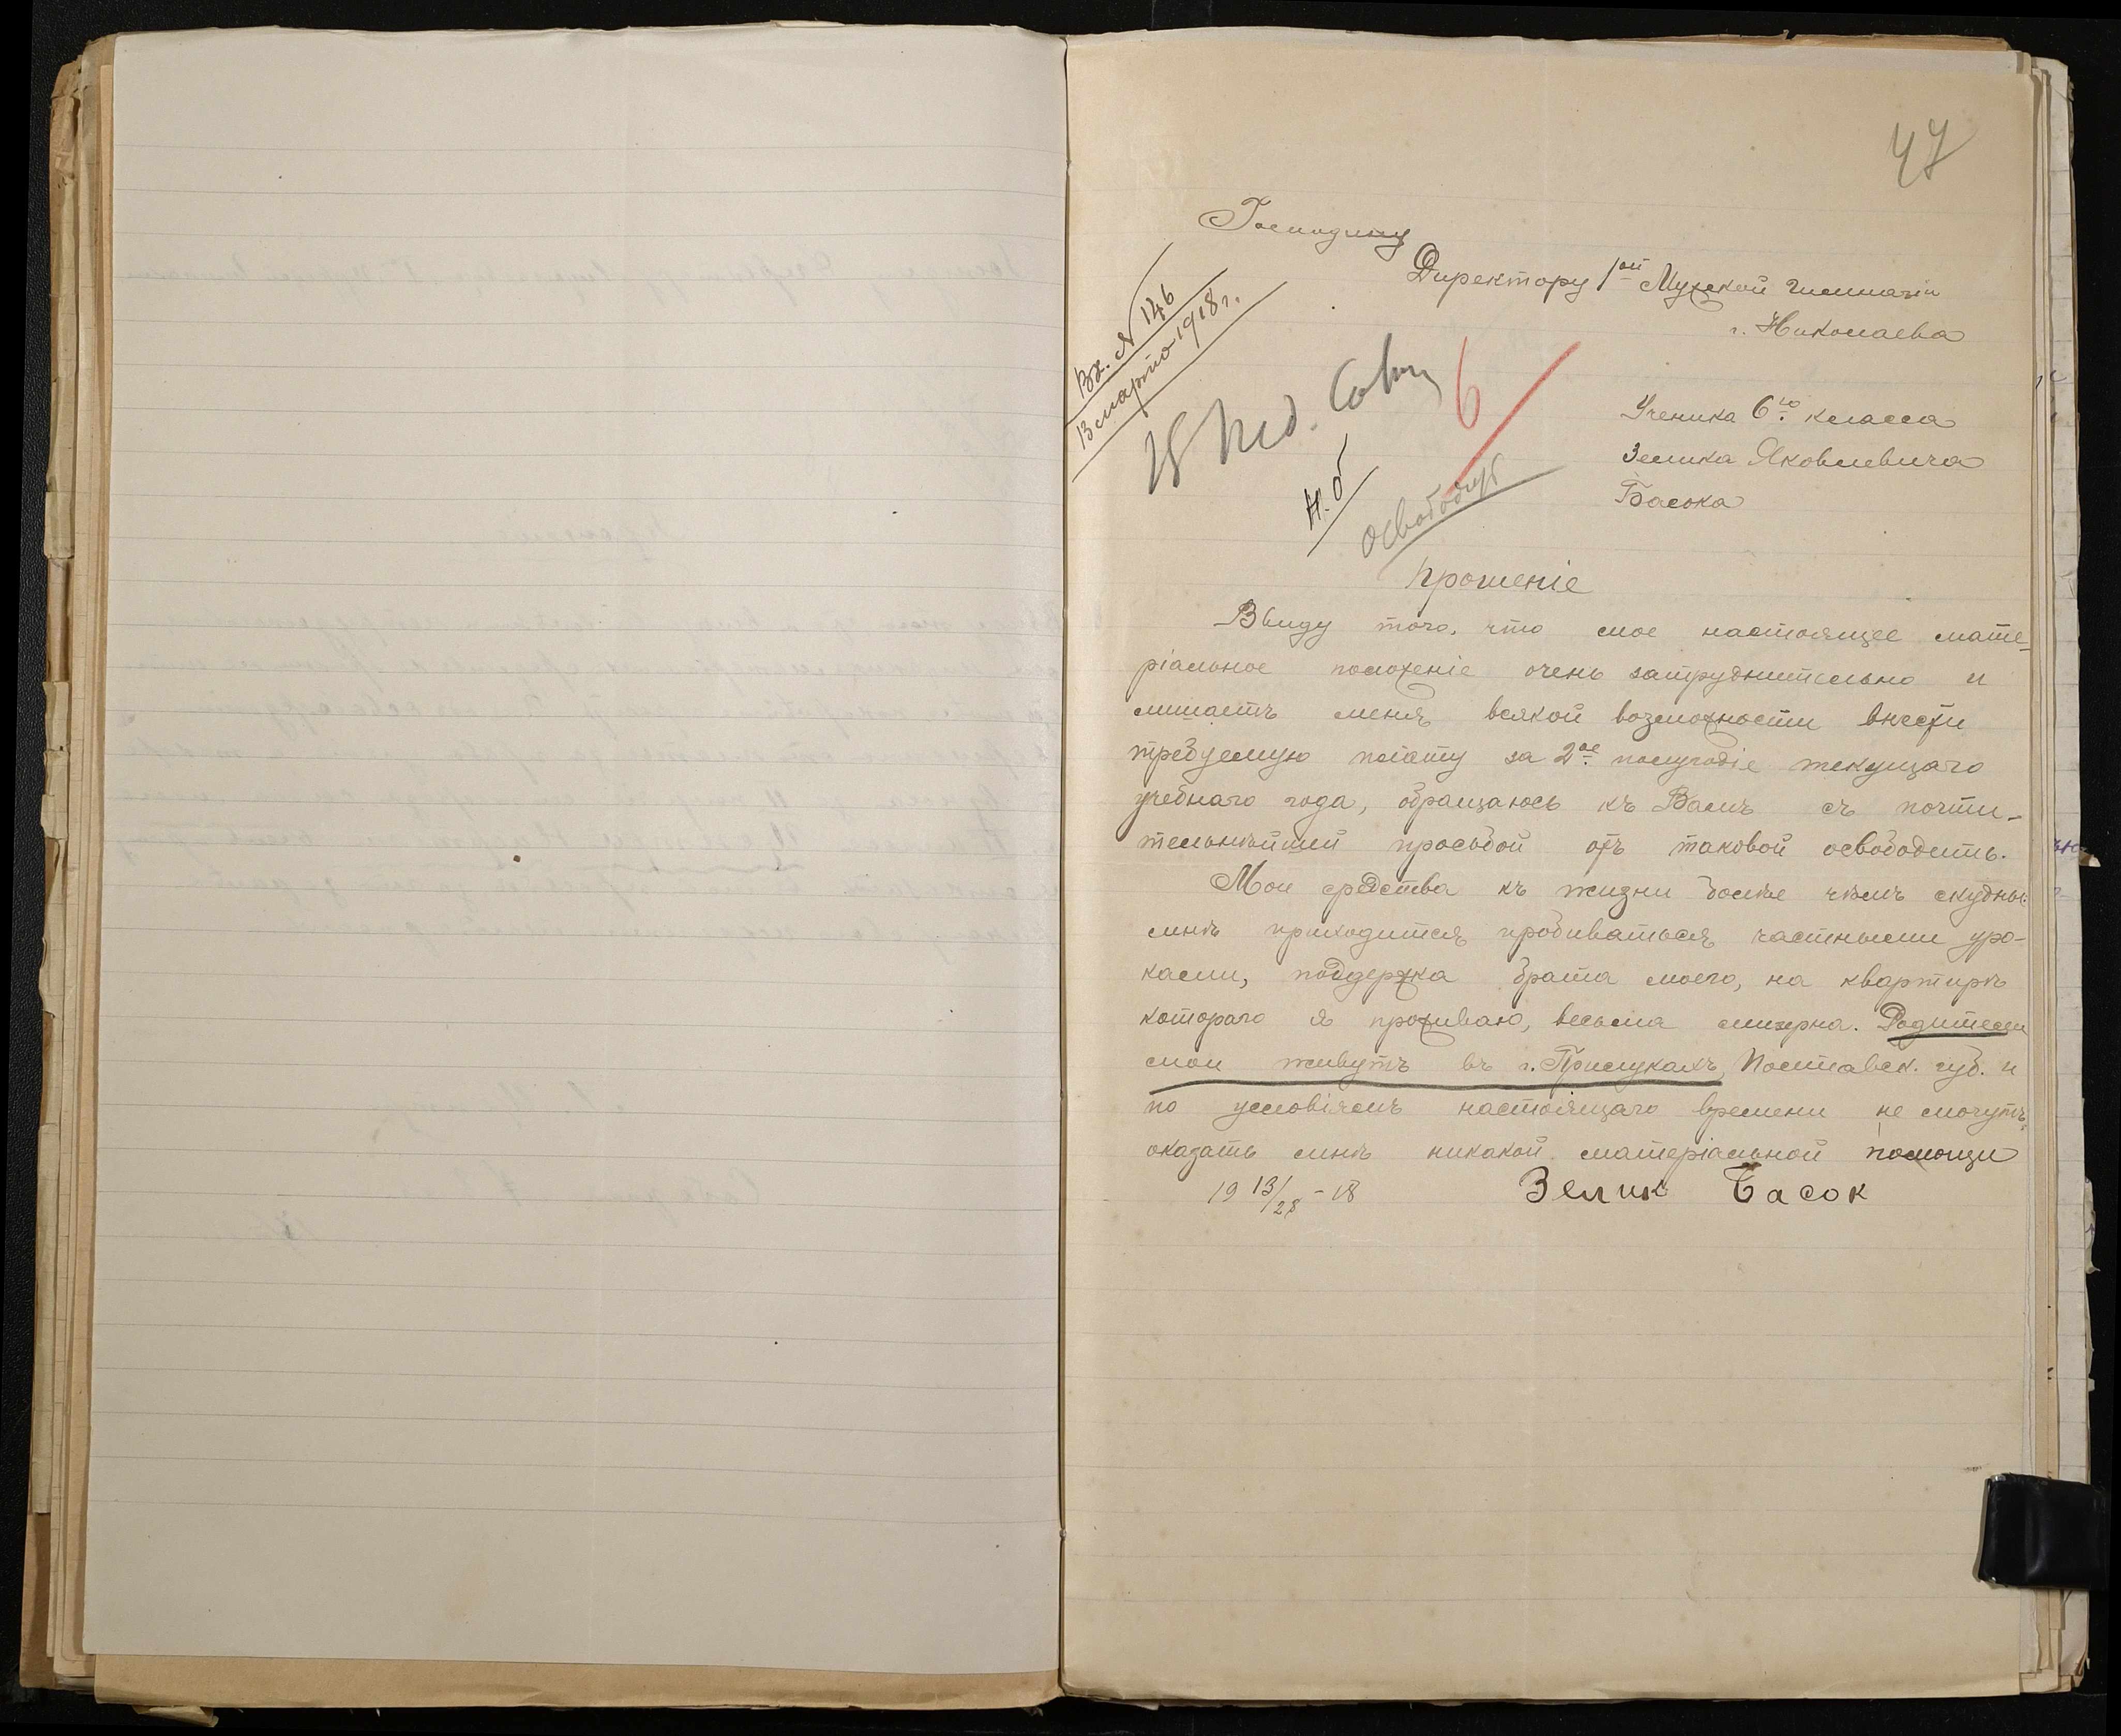 47
Господину
Директору 1ой Мужской гимназіи
г. Николаева
Вх. № 146
13 марта 1918 г.
Пед. Совѣт
6
Н. б
освободить
Ученика 6го класса
Зелика Яковлевича
Басока
Прошеніе
Ввиду того, что мое настоящее мате-
ріальное положеніе очень затруднительно и
лишаетъ меня всякой возможности внести
требуемую плату за 2ое полугодіе текущаго
учебнаго года, обращаюсь къ Вамъ съ почти-
тельнѣйшей просьбой отъ таковой освободить.
Мои средства къ жизни болѣе чѣмъ скудны:
мнѣ приходится пробиваться частными уро-
ками, поддержка брата моего, на квартирѣ
котораго я проживаю, весьма мизерна. Родители
мои живутъ въ г. Прилукахъ, Полтавск. губ. и
по условіямъ настоящаго времени не могутъ
оказать мнѣ никакой матеріальной помощи
19 13/28 - 18 Зелик Басок